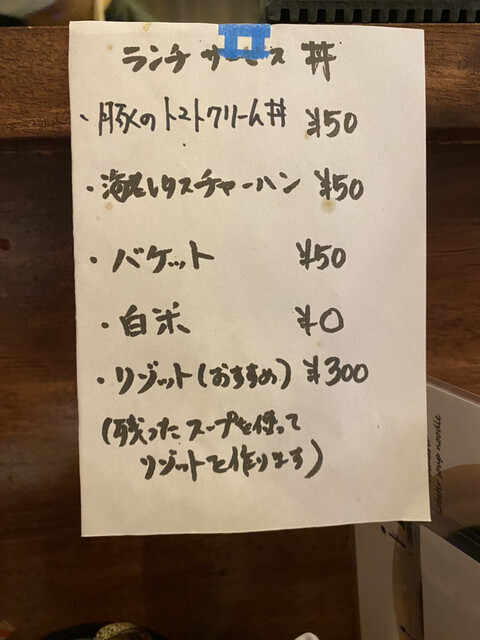 ランチサービス 丼
・豚のトマトクリーム丼 ¥50
・海老レタスチャーハン ¥50
・バケット ¥50
・白米 ¥0
・リゾット(おすすめ) ¥300
(残ったスープを使って
リゾットを作ります)
Lobster soup noodle